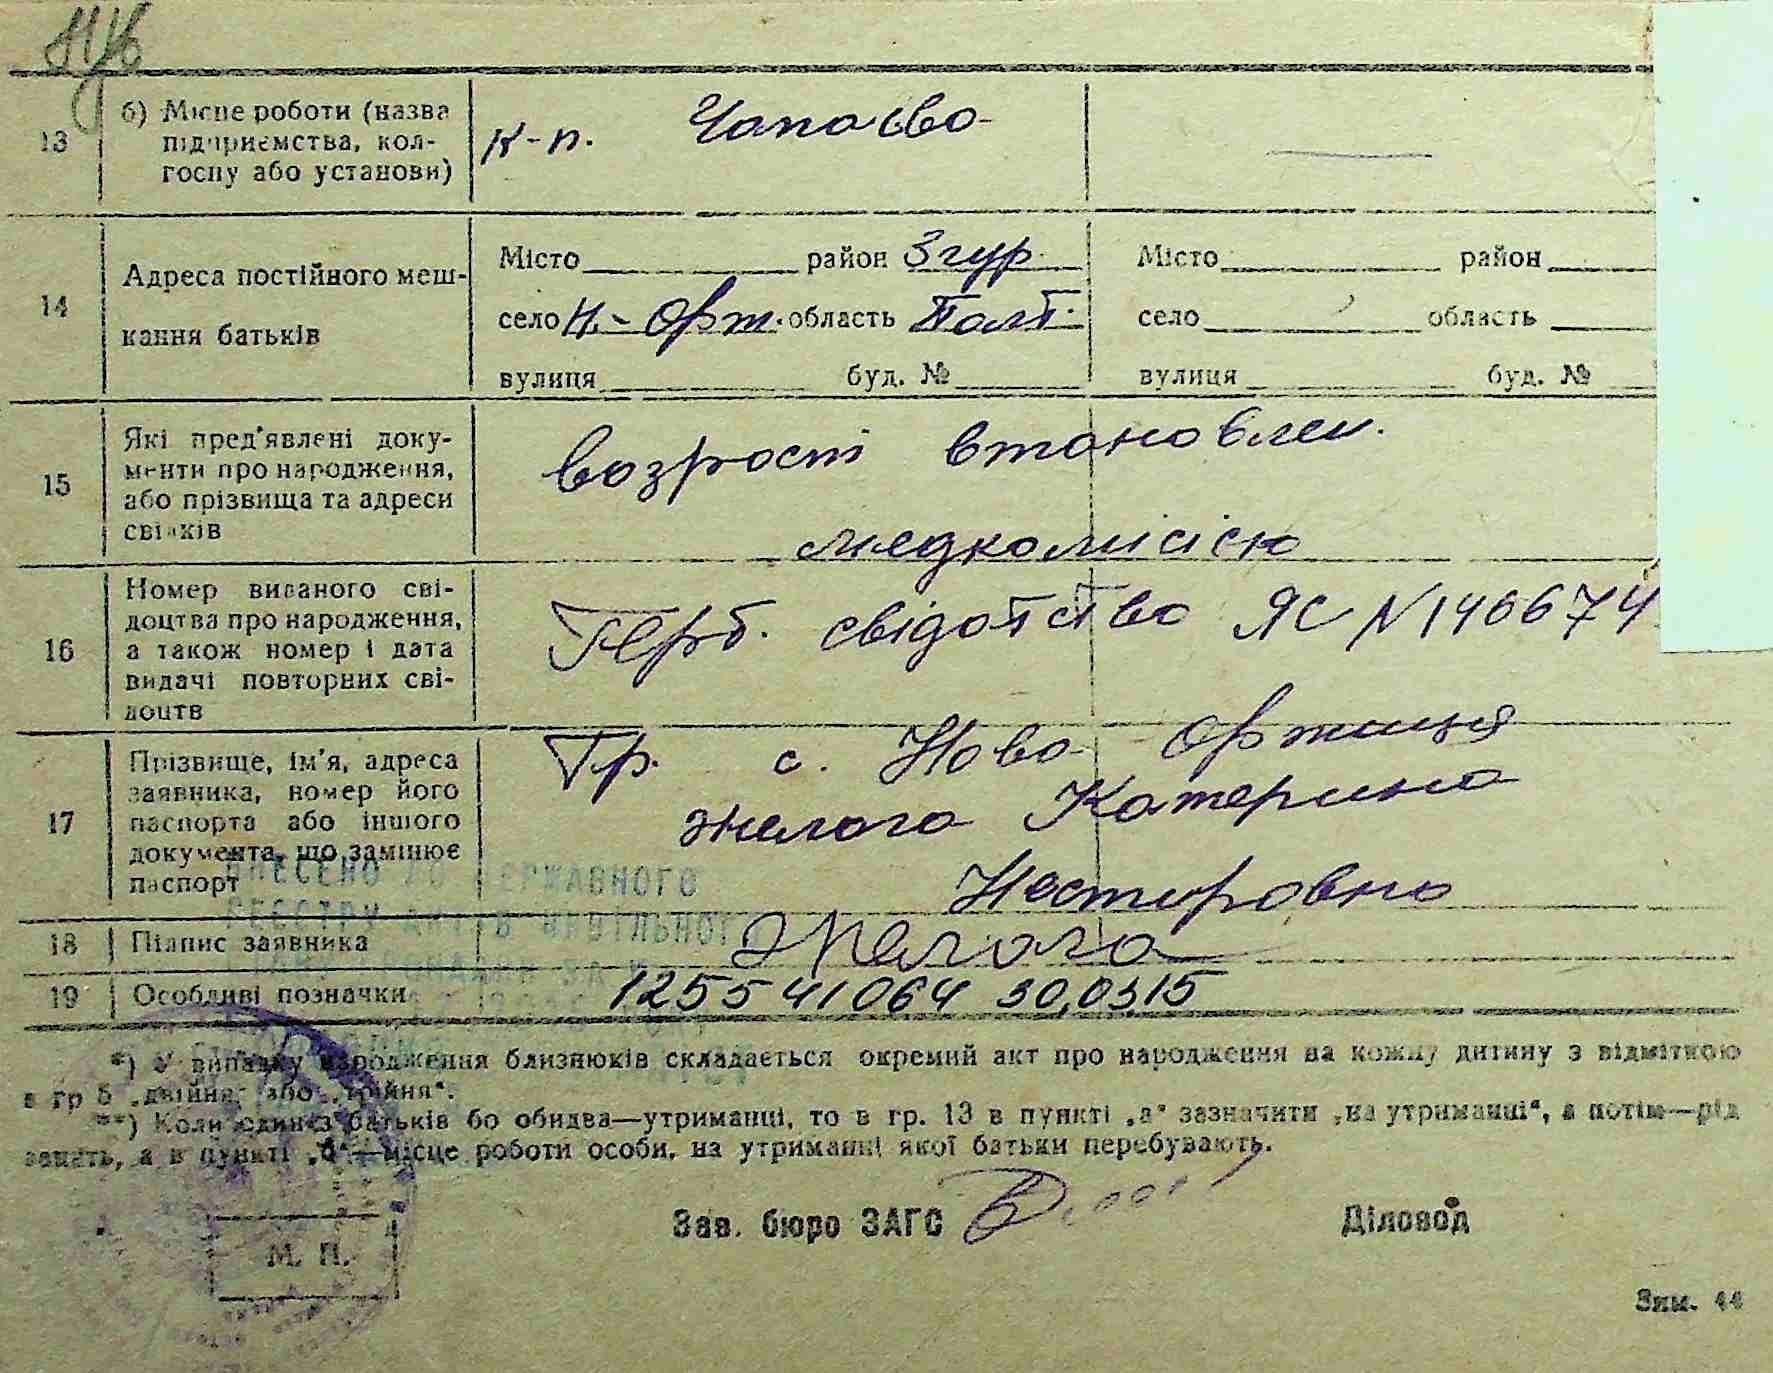 13
б) Місце роботи (назва
підприємства, кол-
госпу або установи)
к-п. Чапаєва
14
Адреса постійного меш-
кання батьків
Місто район Згур.
село Н.-Орж. область Полт.
вулиця буд. №
Місто район
село область
вулиця буд. №
15
Які пред'явлені доку-
менти про народження,
або прізвища та адреси
свідків
возрост встановлен.
медкомісією
16
Номер виданого сві-
доцтва про народження,
а також номер і дата
видачі повторних сві-
доцтв
Герб. свідотство ЯС N 140674
17
Прізвище, ім'я, адреса
заявника, номер його
паспорта або іншого
документа, що замінює
паспорт
Гр. с. Ново Оржиця
Жмага Катерина
Нестеровна
ВНЕСЕНО ДО ДЕРЖАВНОГО
РЕЄСТРУ АКТІВ ЦИВІЛЬНОГО
18
Підпис заявника
19
Особливі позначки
125541064 30.03.15
*) У випадку народження близнюків складається окремий акт про народження на кожну дитину з відміткою
в гр 5 „двійня“ або „трійня“.
**) Коли один з батьків бо обидва—утриманці, то в гр. 13 в пункті „а“ зазначити „на утриманні“, а потім—рід
занять, а в пункті „б“—місце роботи особи, на утриманні якої батьки перебувають.
Зав. бюро ЗАГС
Діловод
М. П.
Зам. 44